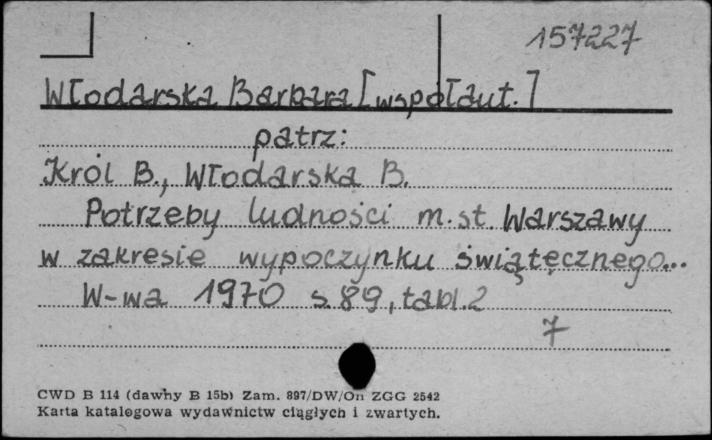 157227
Włodarska Barbara [współaut.]
patrz:
Król B., Włodarska B.
Potrzeby ludności m.st. Warszawy
w zakresie wypoczynku świątecznego...
W-wa 1970 s.89, tabl.2
7
CWD B 114 (dawny B 15b) Zam. 897/DW/On ZGG 2542
Karta katalogowa wydawnictw ciągłych i zwartych.